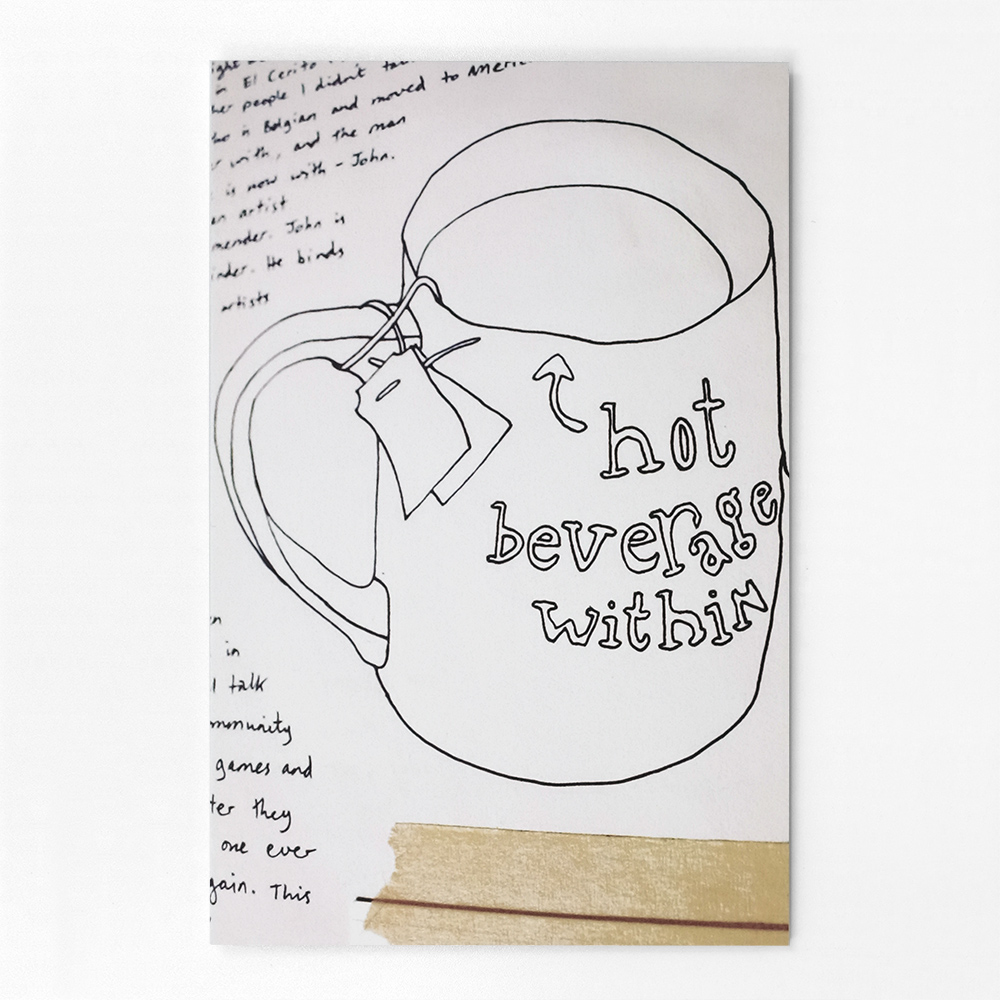 El Cerito
people I didn't
is Belgian and moved to Americ
with, and the man
is now with - John.
an artist
mender. John is
inder. He binds
artists
hot
beverage
within
en
in
I talk
mmunity
games and
ter they
one ever
gain. This